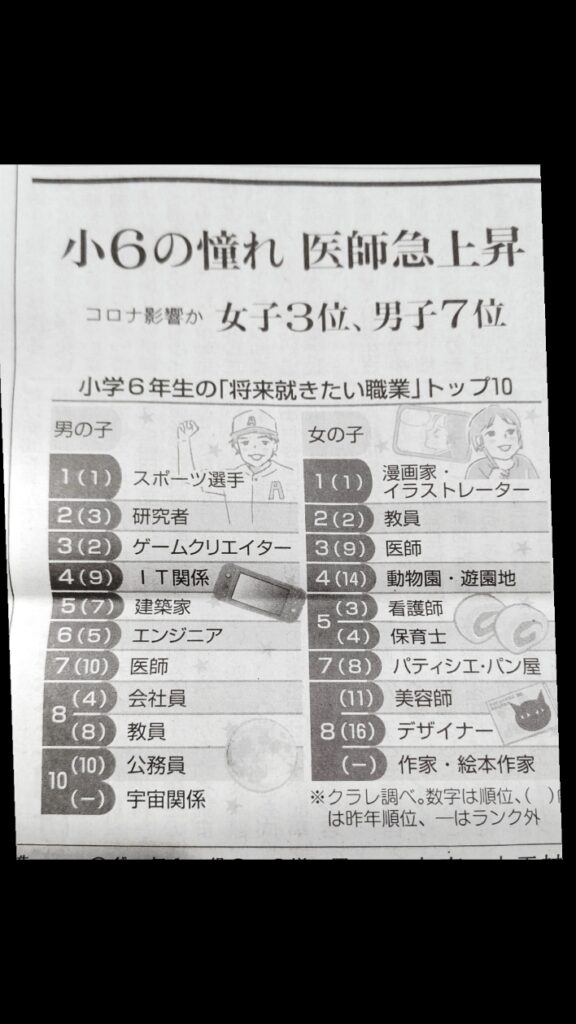 小6の憧れ 医師急上昇
コロナ影響か 女子3位、男子7位
小学6年生の「将来就きたい職業」トップ10
男の子
1(1) スポーツ選手
2(3) 研究者
3(2) ゲームクリエイター
4(9) IT関係
5(7) 建築家
6(5) エンジニア
7(10) 医師
8 (4) 会社員
(8) 教員
10 (10) 公務員
(−) 宇宙関係
女の子
1(1) 漫画家・
イラストレーター
2(2) 教員
3(9) 医師
4(14) 動物園・遊園地
5 (3) 看護師
(4) 保育士
7(8) パティシエ・パン屋
(11) 美容師
8 (16) デザイナー
(−) 作家・絵本作家
※クラレ調べ。数字は順位、( )
は昨年順位、―はランク外